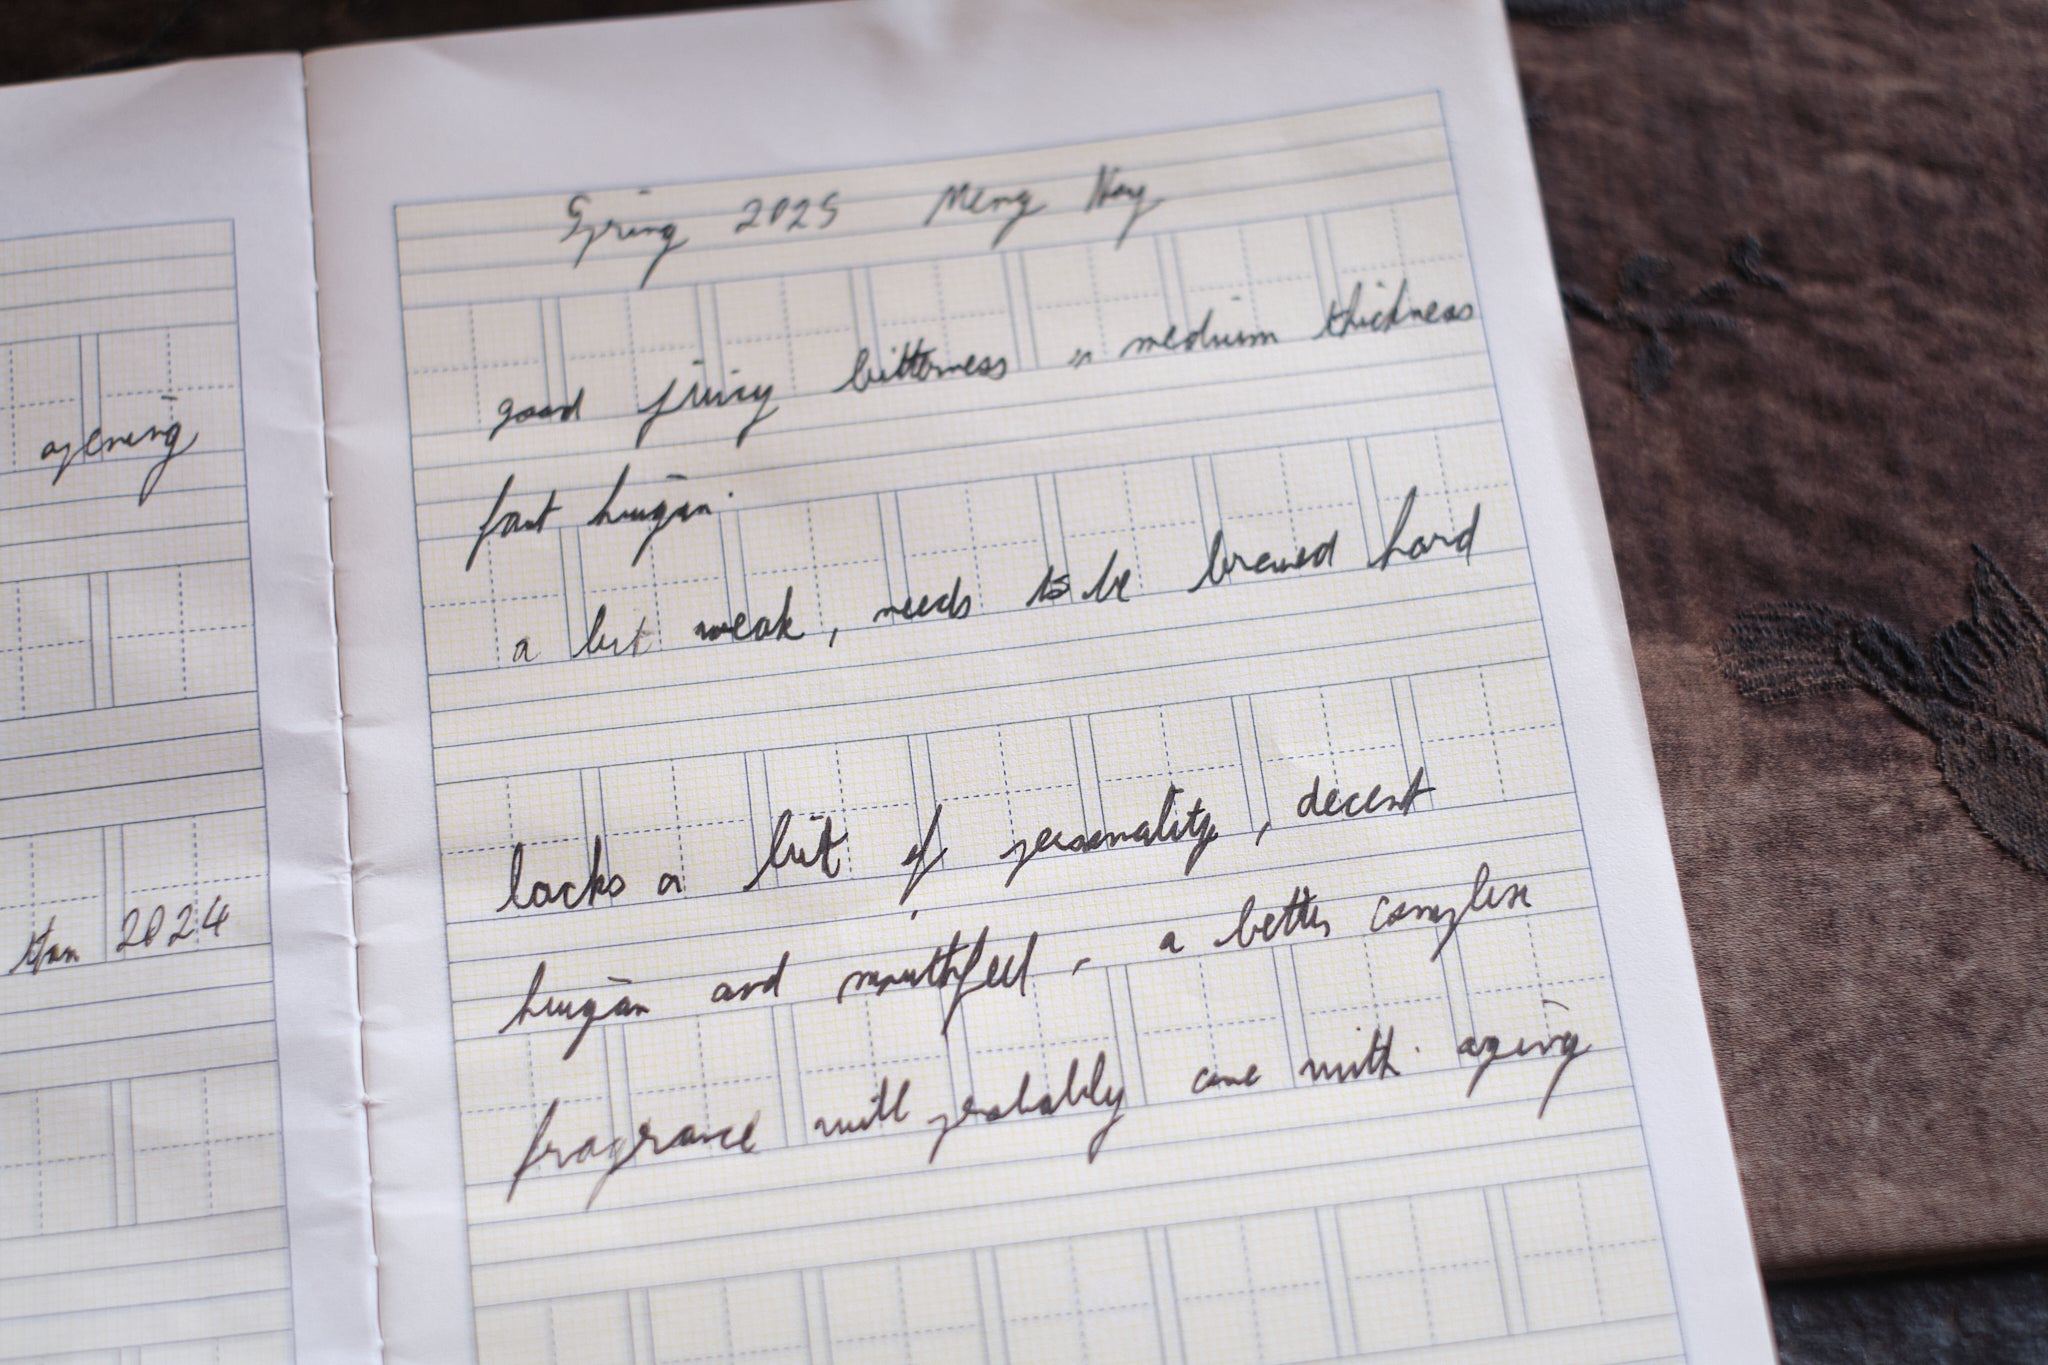 opening
than 2024
Spring 2025 Meng Hay
good juicy bitterness in medium thickness
fast huigan.
a bit weak, needs to be brewed hard
lacks a bit of personality, decent
huigan and mouthfeel, a better complex
fragrance will probably come with ageing